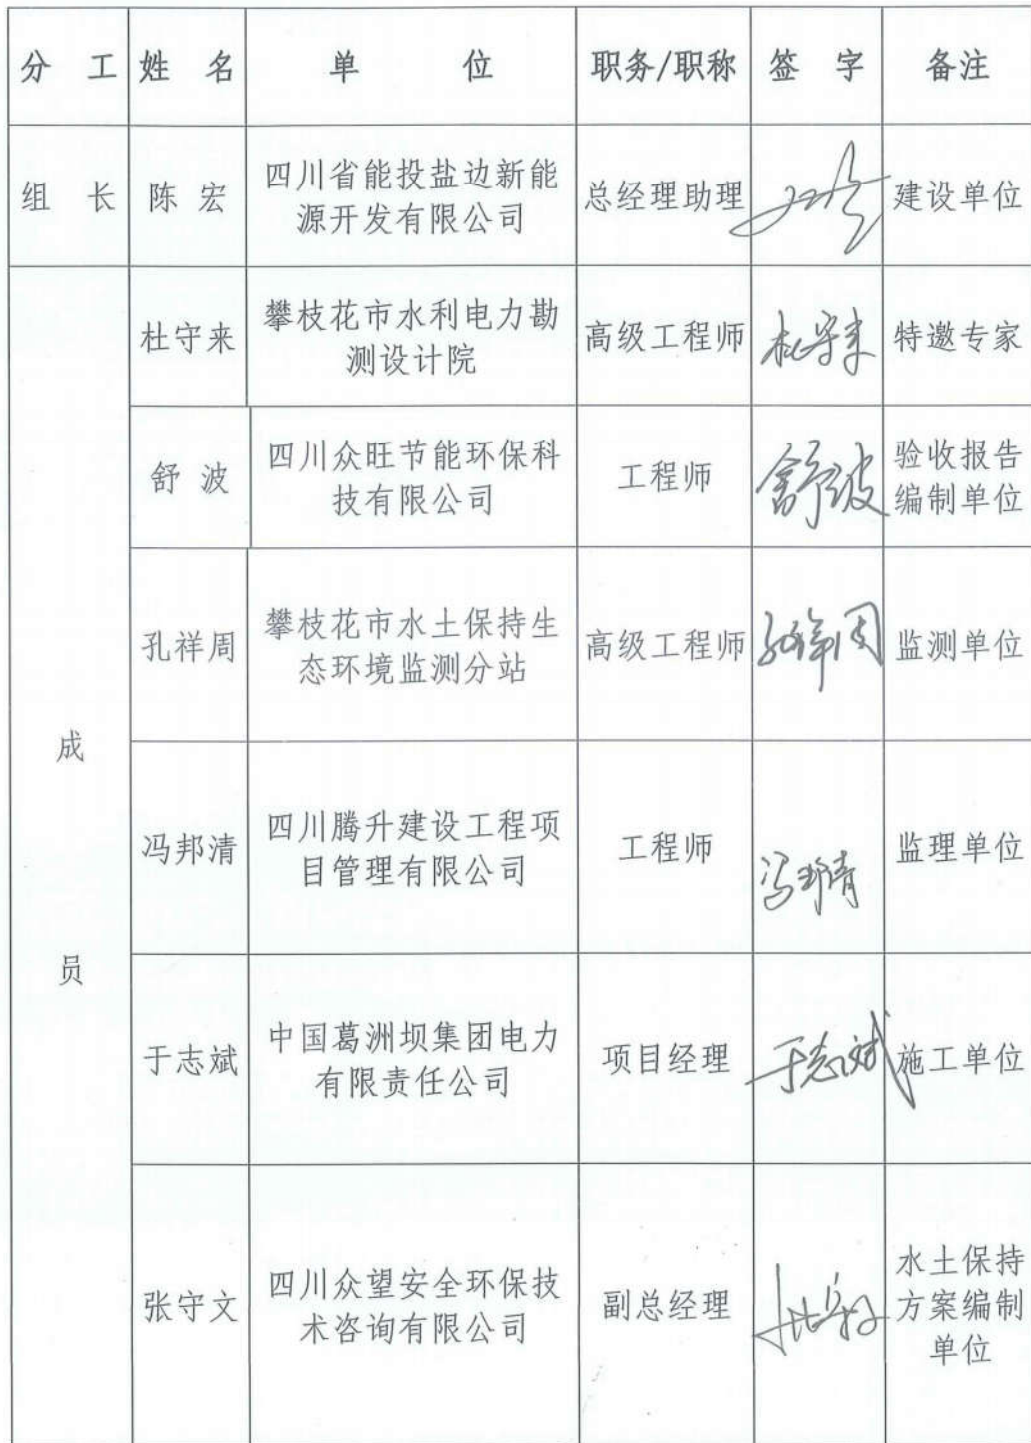 分 工 姓 名 单 位 职务/职称 签 字 备注
组 长 陈 宏 四川省能投盐边新能
源开发有限公司 总经理助理 建设单位
成
员
杜守来 攀枝花市水利电力勘
测设计院 高级工程师 杜守来 特邀专家
舒 波 四川众旺节能环保科
技有限公司 工程师 舒波 验收报告
编制单位
孔祥周 攀枝花市水土保持生
态环境监测分站 高级工程师 孔祥周 监测单位
冯邦清 四川腾升建设工程项
目管理有限公司 工程师 冯邦清 监理单位
于志斌 中国葛洲坝集团电力
有限责任公司 项目经理 于志斌 施工单位
张守文 四川众望安全环保技
术咨询有限公司 副总经理 水土保持
方案编制
单位